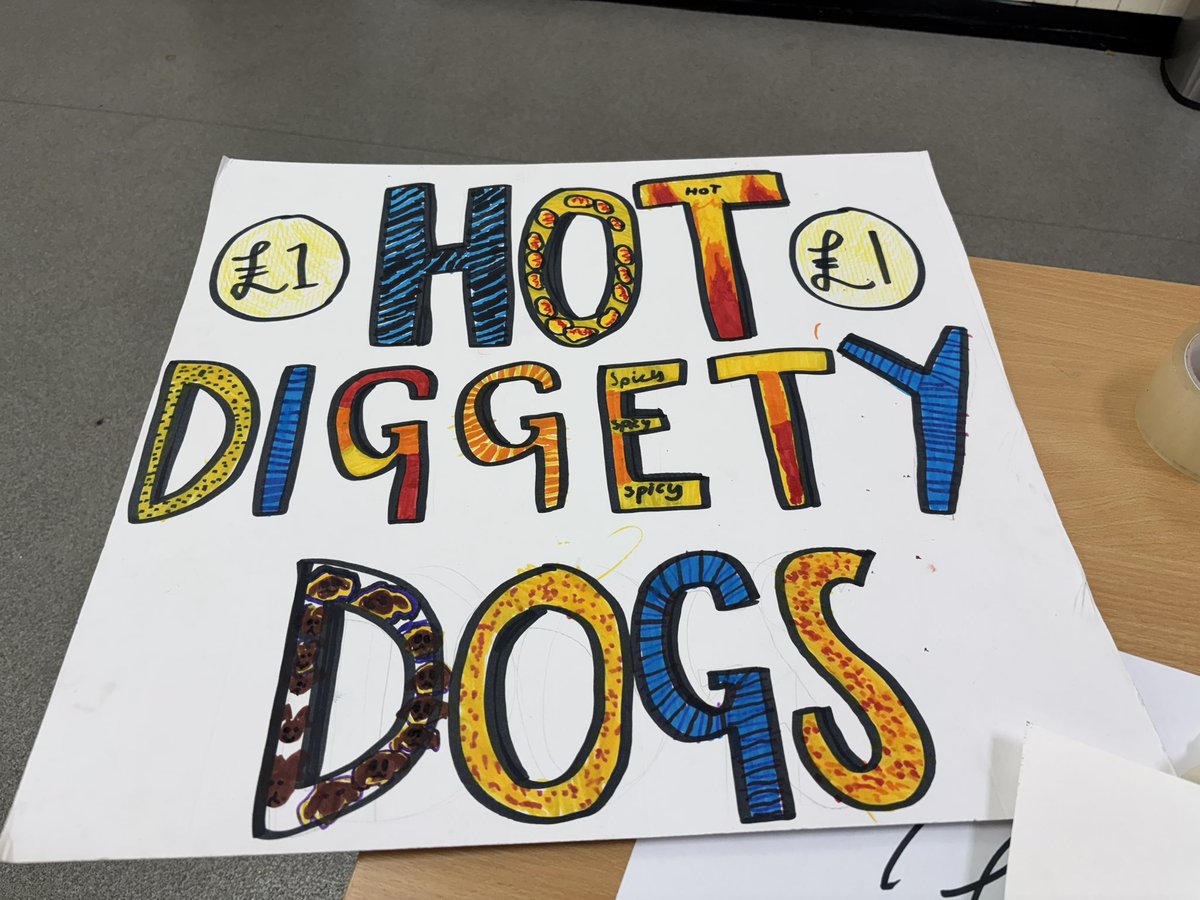 £1 HOT £1
HOT
DIGGETY
Spicy
spicy
spicy
DOGS